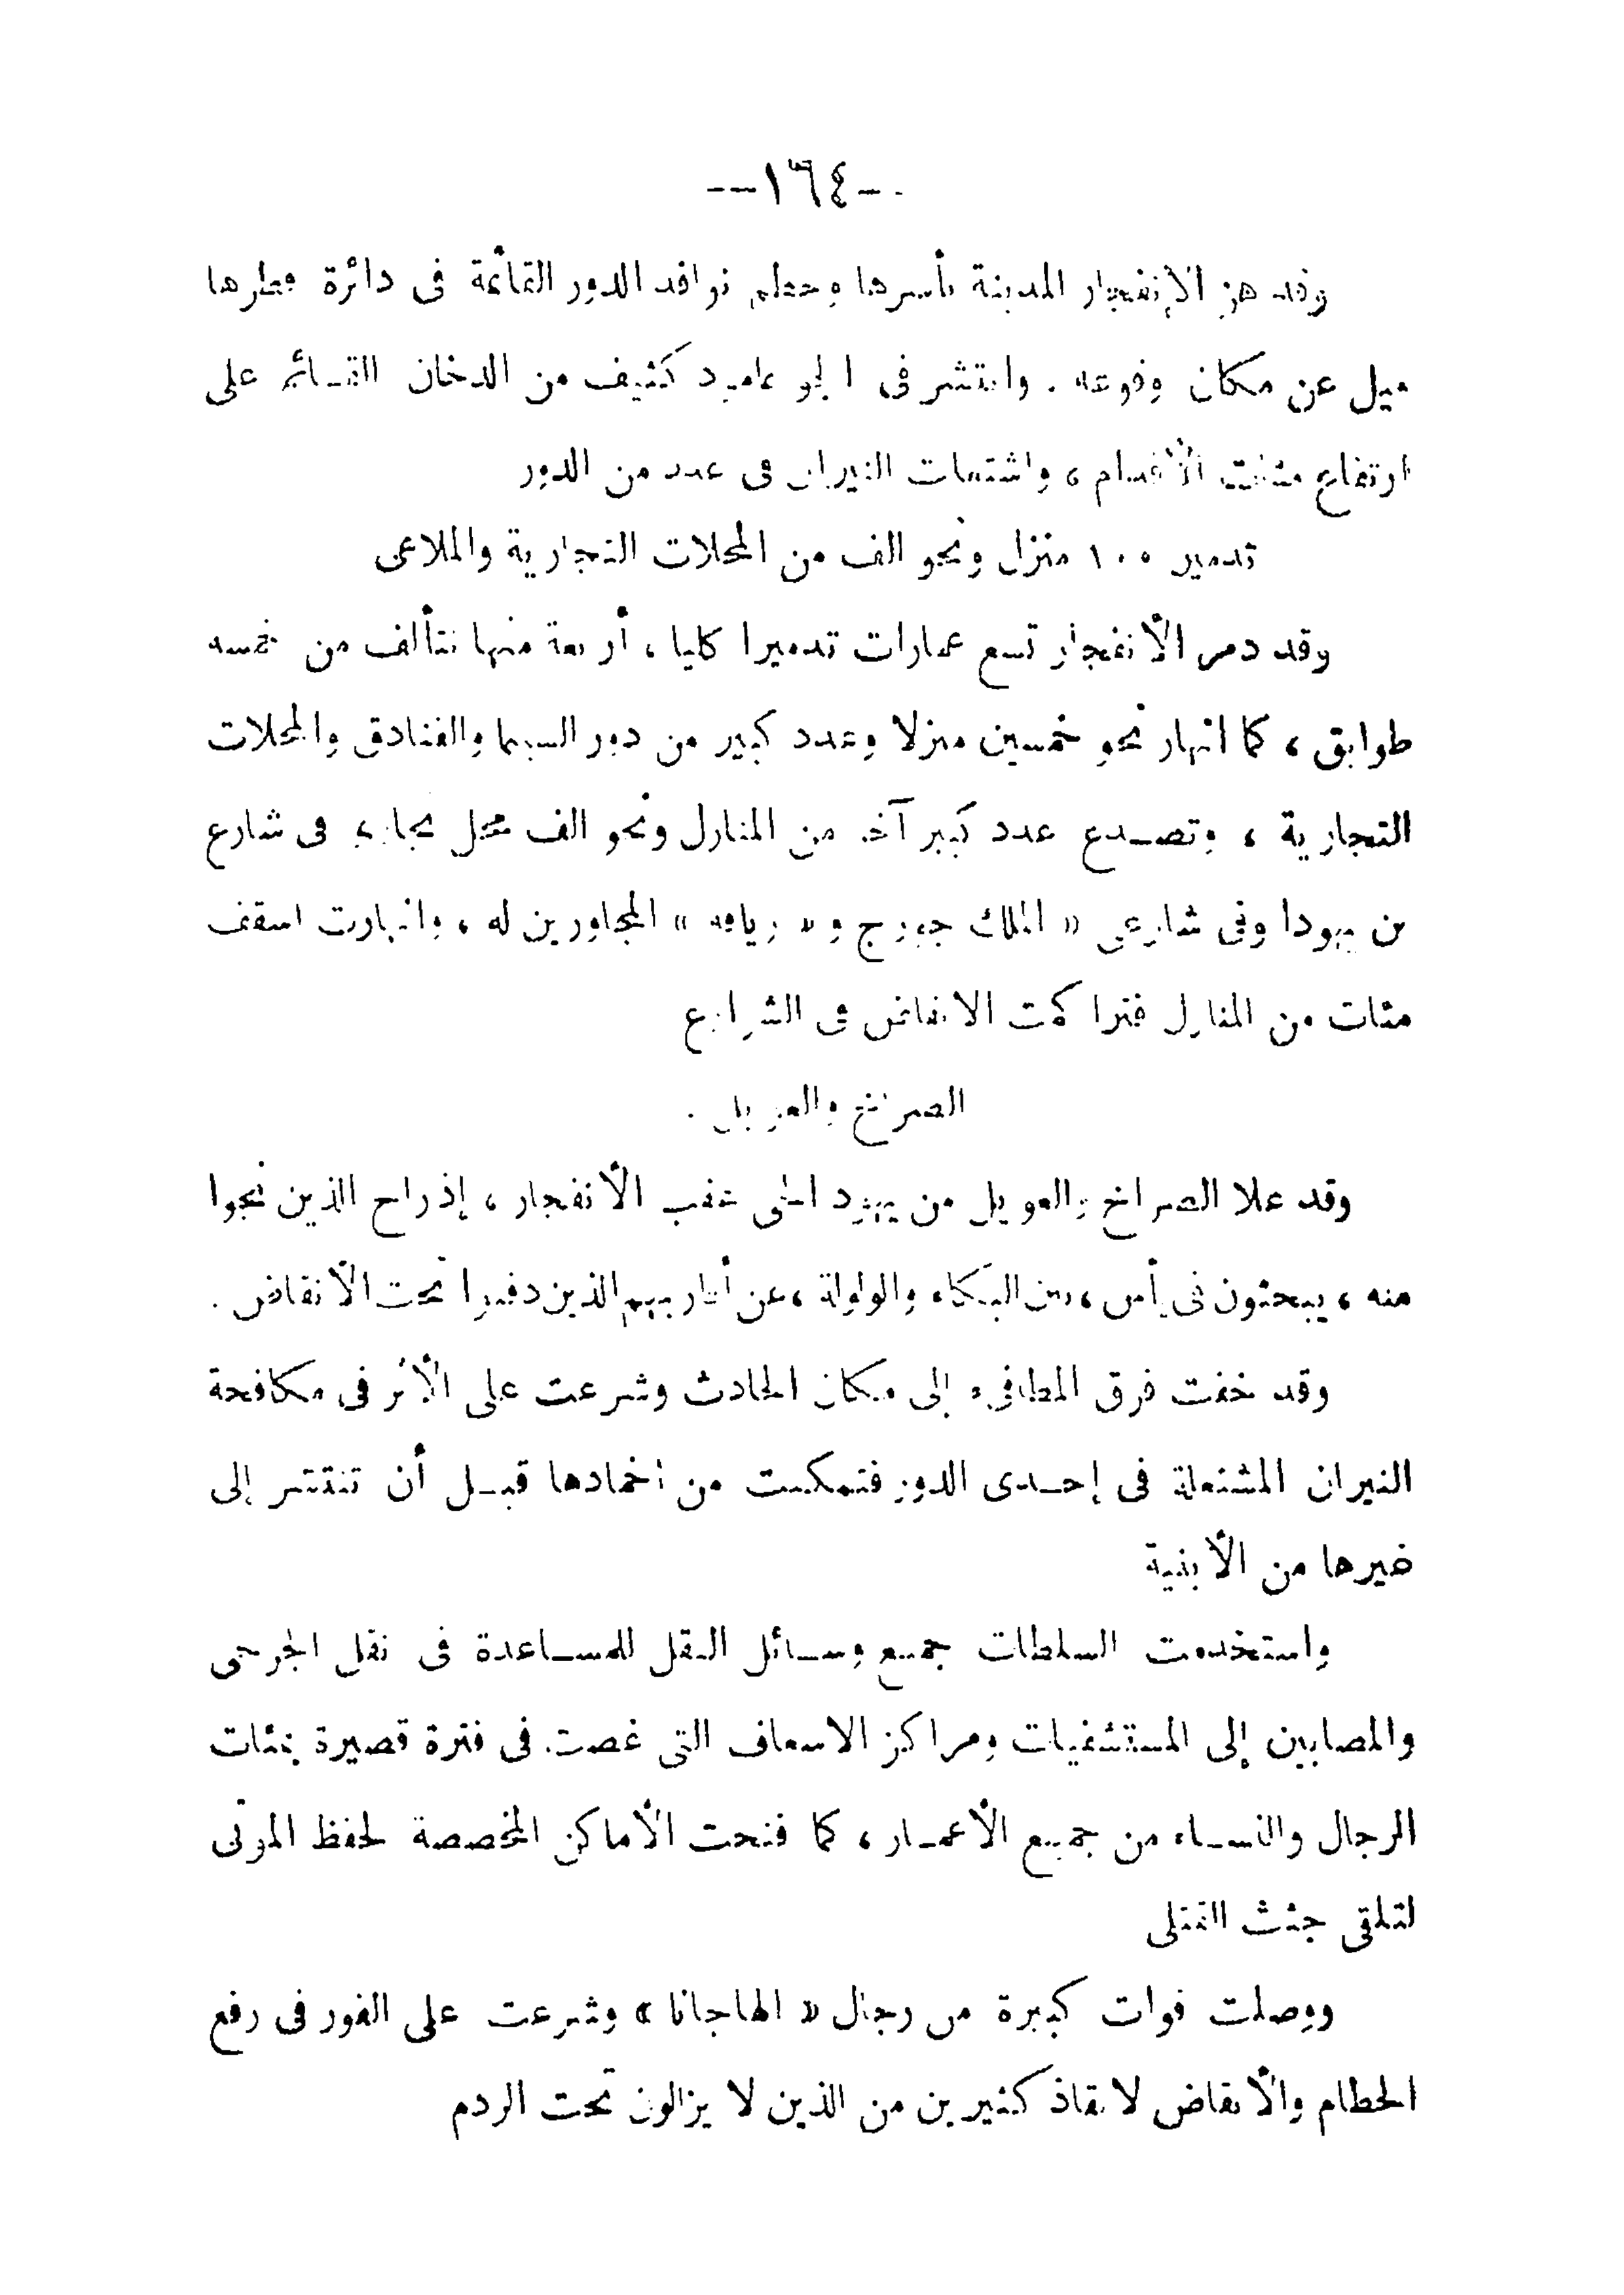 --١٦٤--
وقد هز الإنفجار المدينة بأسرها وحطم نوافد الدور القائمة فى دائرة قطرها
ميل عن مكان وقوعه . وانتشر فى الجو عامود كثيف من الدخان القـائم على
ارتفاع مئات الأقدام ، واشتعلت النيران فى عدد من الدور
تدمير ١٠٠ منزل ونحو الف من المحلات التجارية والملاهى
وقد دمر الأنفجار تسع عمارات تدميرا كليا ، أربعة منها تتألف من خمسه
طوابق ، كما انهار نحو خمسين منزلا وعدد كبير من دور السينما والفنادق والمحلات
التجارية ، وتصـدع عدد كبير آخر من المنازل ونحو الف محل تجارى فى شارع
بن يهودا وفى شارعى « الملك جورج و « » المجاورين له ، وانهارت اسقف
مئات من المنازل فتراكمت الانقاض فى الشوارع
الصراخ والعويل .
وقد علا الصراخ والعويل من يهود الحى عقب الأنفجار ، إذ راح الذين نجوا
منه ، يبحثون فى يأس ، بين البكاء والولولة ، عن أقاربهم الذين دفنوا تحت الأنقاض .
وقد خفت فرق المطافىء إلى مكان الحادث وشرعت على الأثر فى مكافحة
النيران المشتعلة فى إحـدى الدور فتمكنت من اخمادها قبـل أن تنتشر إلى
غيرها من الأبنية
واستخدمت السلطات جميع وسـائل النقل للمسـاعدة فى نقل الجرحى
والمصابين إلى المستشفيات ومراكز الاسعاف التى غصت فى فترة قصيرة بمئات
الرجال والنسـاء من جميع الأعمـار ، كما فتحت الأماكن المخصصة لحفظ الموتى
لتلقى جثث القتلى
ووصلت قوات كبيرة من رجال « الهاجانا » وشرعت على الفور فى رفع
الحطام والأنقاض لانقاذ كثيرين من الذين لا يزالون تحت الردم